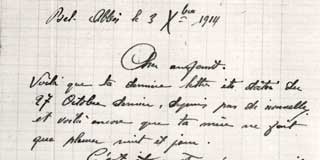 Bel Abbès le 3 Xbre 1914
Cher enfant.
Voilà que ta dernière lettre été datée du
27 Octobre dernier, depuis pas de nouvelle
et voilà encore que ta mère ne fait
que pleurer nuit et jour.